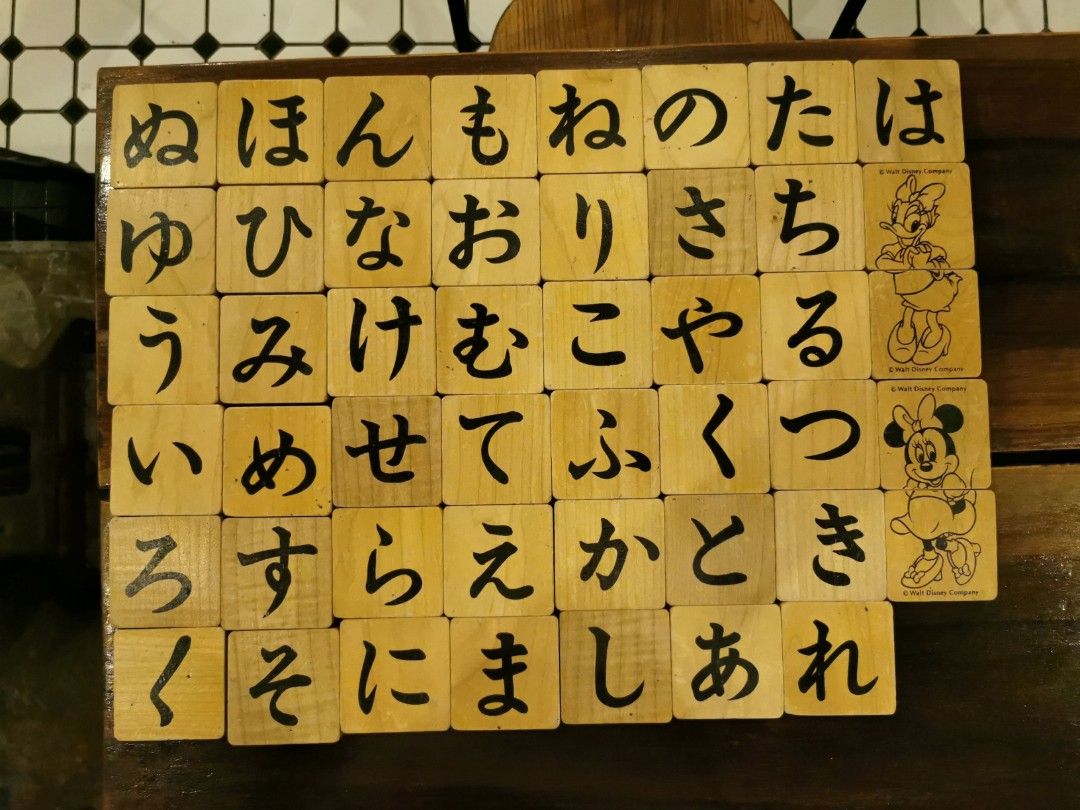 ぬほんもねのたは
© Walt Disney Company
ゆひなおりさち
うみけむこやる
© Walt Disney Company
© Walt Disney Company
いめせてふくつ
ろすらえかとき
© Walt Disney Company
くそにましあれ